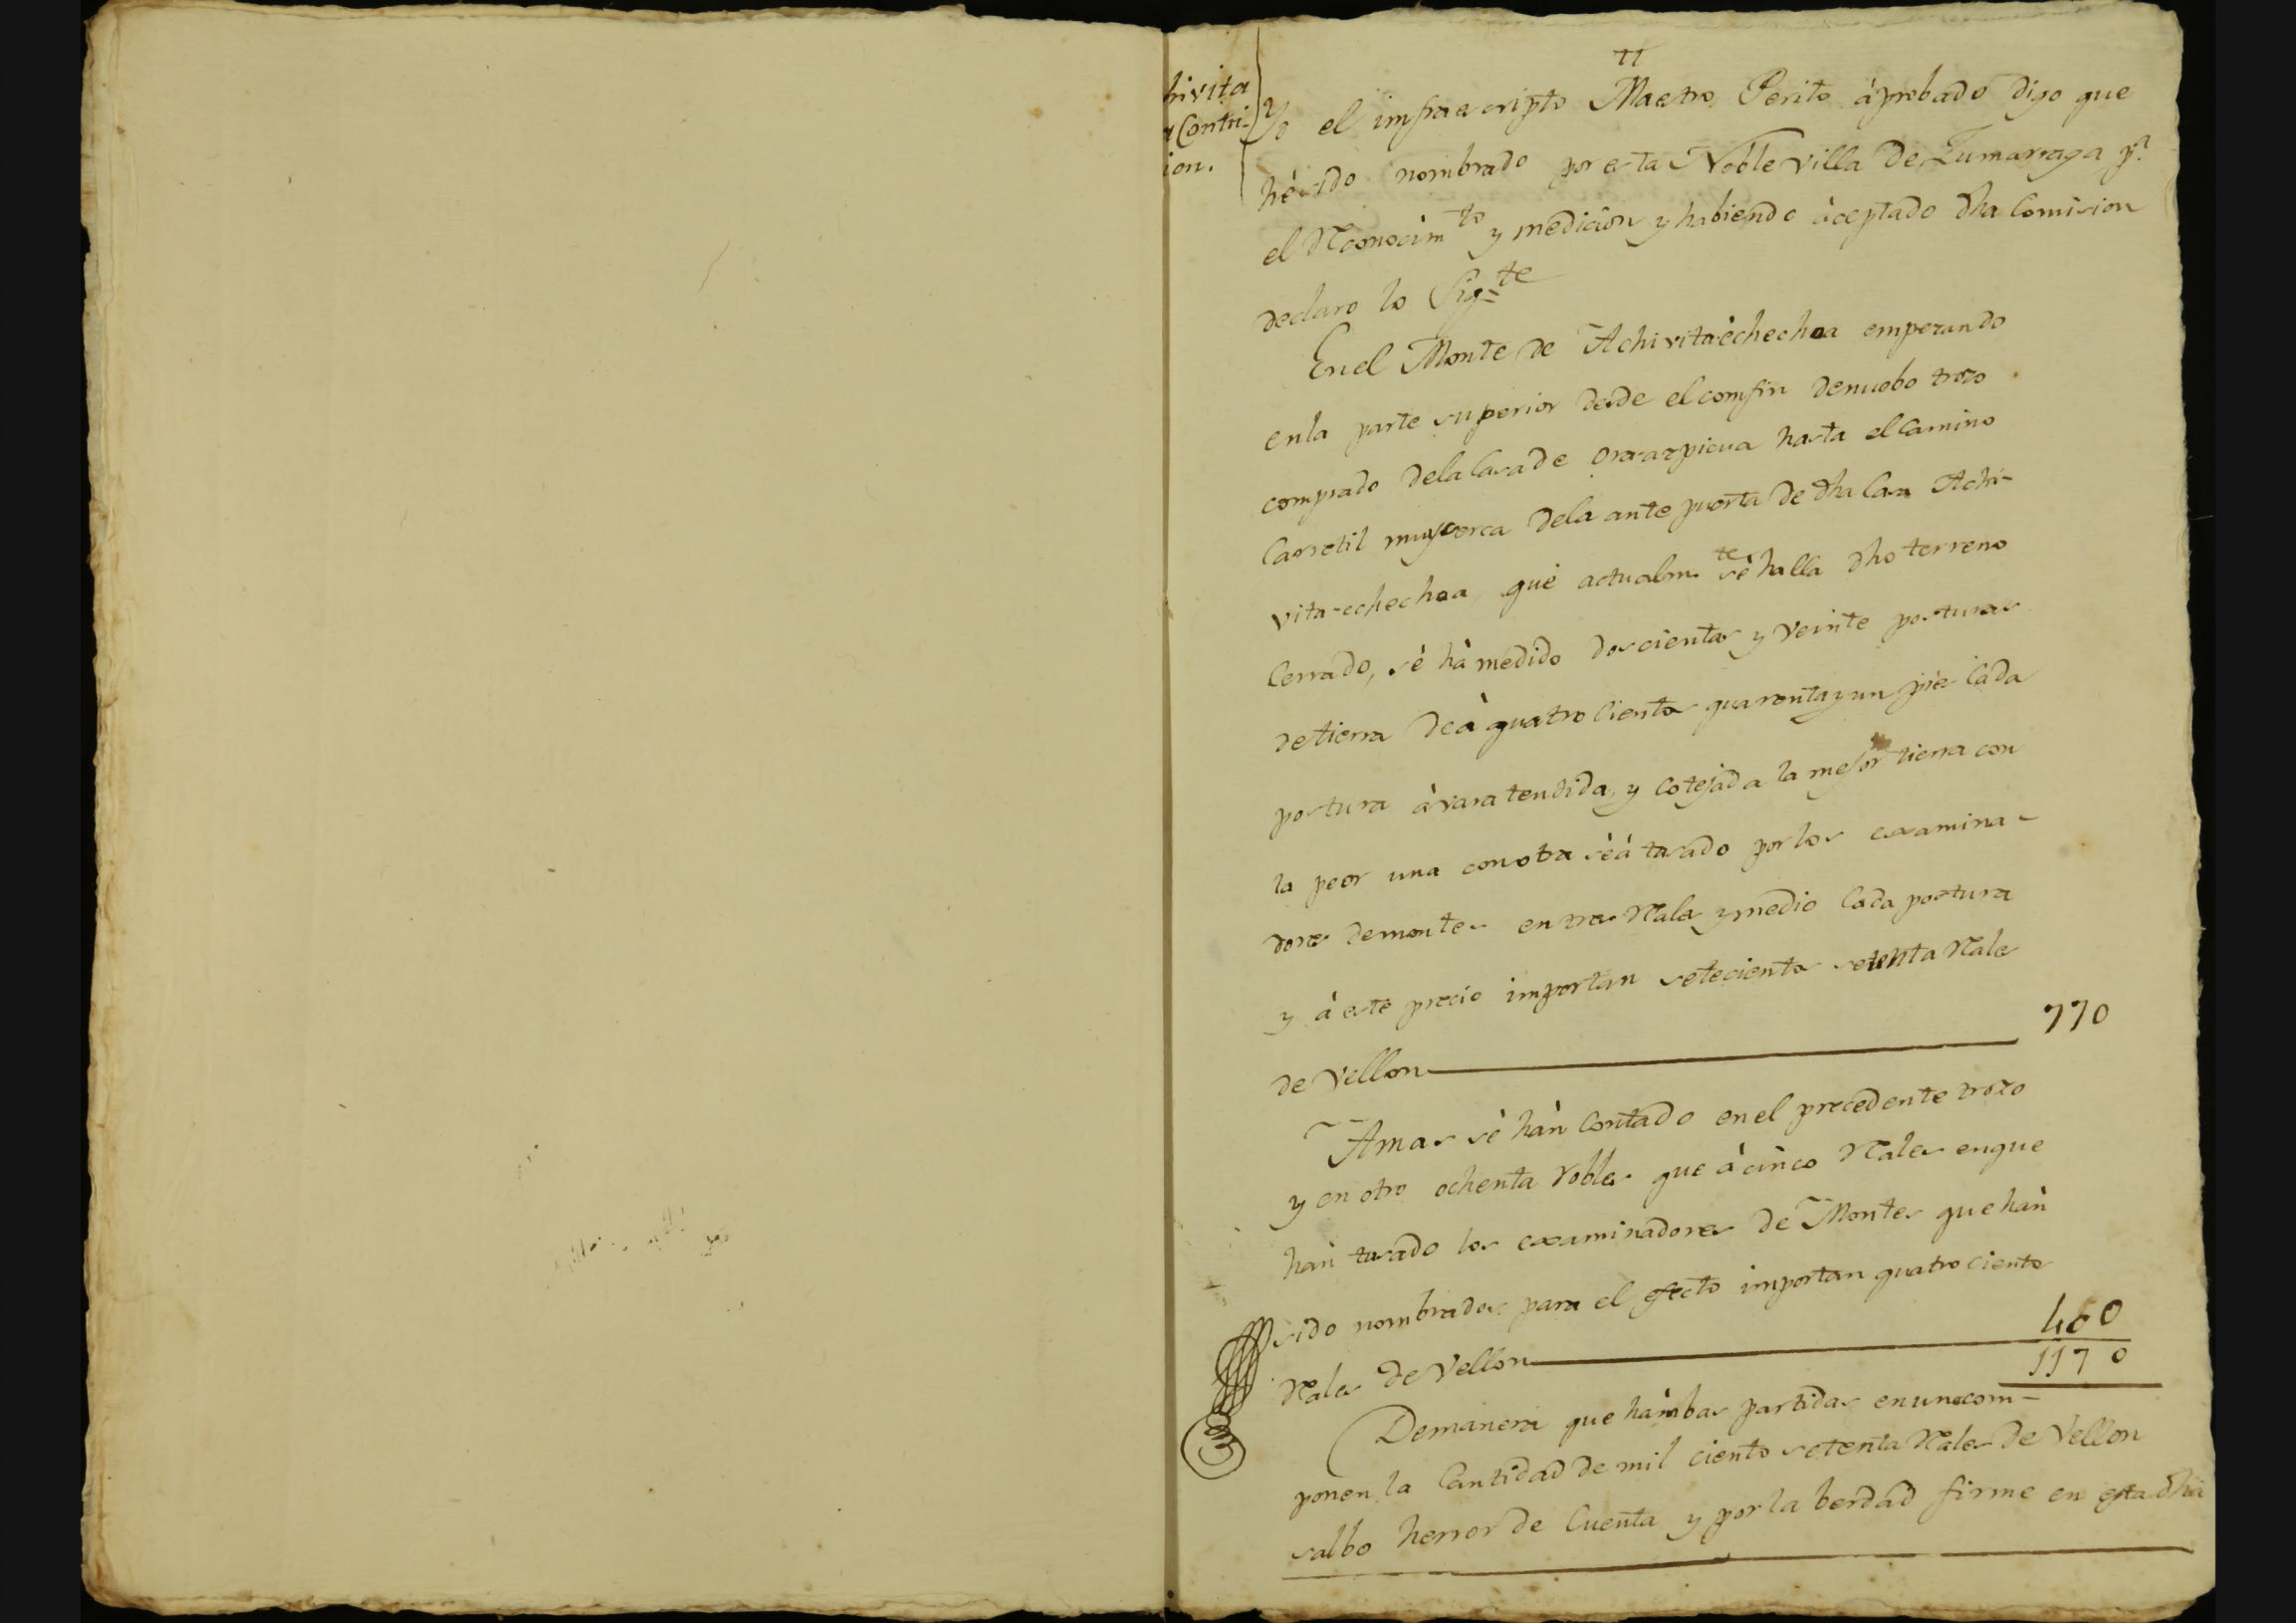 hivita
a Contri-
ion.
Yo el infraescripto Maestro Perito áprobado digo que
hé sido nombrado por esta Noble villa De Zumarraga pa.
el Rconocimto y medicion y habiendo áceptado dha Comision
declaro lo Sigte
En el Monte de Achivita échechoa empezando
en la parte superior desde el comfin de nuebo trozo
comprado de la Casa de Orarazpicua hasta el Camino
Carretil muy cerca de la ante puerta de dha Casa Achi-
vita-echechoa, que actualmte sé halla dho terreno
Cerrado, sé há medido doscientas y veinte posturas
de tierra de á quatro Cientos quarenta y un pie Cada
postura á vara tendida, y Cotejada la mejor tierra con
la peor una con otra sé á tasado por los examina-
dores de montes en tres Rales y medio Cada postura
y á este precio importan setecientos setenta Rales
de Vellon 770
Amas sé hán Contado en el precedente trozo
y en otro ochenta Robles que á cinco Rales en que
hán tasado los examinadores de Montes que hán
sido nombrados para el efecto importan quatro cientos
Rales de Vellon 400
1170
De manera que hámbas partidas en una com-
ponen la Cantidad de mil ciento setenta Rales de Vellon
salbo herror de Cuenta y por la berdad firme en esta dha